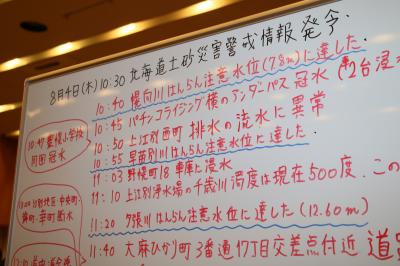 8月4日(木)10:30 北海道土砂災害警戒情報発令.
10:40 幌向川はんらん注意水位(7.8m)に達した.
10:45 パチンコライジング横のアンダーパス冠水(車2台浸
10:47 豊幌小学校
周囲冠水
10:50 上江別西町 排水の流水に異常
10:55 早苗別川はんらん注意水位に達した.
11:03 野幌町18 車庫に浸水
町・幸町断水
11:10 上江別浄水場の千歳川濁度は現在500度.この
11:20 夕張川はんらん注意水位に達した(12.60m)
11:40 大麻ひかり町 3番通17丁目交差点付近 道路